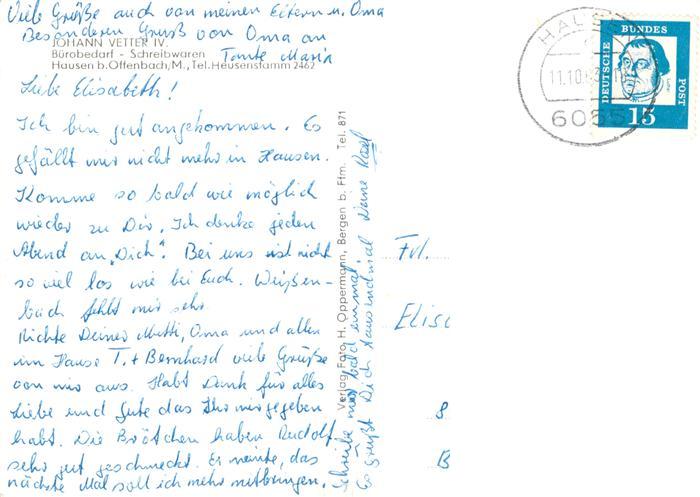 Viele Grüße auch von meinen Eltern u. Oma
Besonderen Gruß von Oma an
Tante Maria
JOHANN VETTER IV.
Bürobedarf - Schreibwaren
Hausen b. Offenbach, M., Tel. Heusenstamm 2462
Liebe Elisabeth!
Ich bin gut angekommen. Es
gefällt mir nicht mehr in Hausen.
Komme so bald wie möglich
wieder zu Dir. Ich denke jeden
Abend an „Dich". Bei uns ist nicht
so viel los wie bei Euch. Weißen-
bach fehlt mir sehr
Richte Deiner Mutti, Oma und allen
im Hause T. + Bernhard viele Grüße
von mir aus. Habt Dank für alles
Liebe und Gute das Ihr mir gegeben
habt. Die Brötchen haben Rudolf
sehr gut geschmeckt. Er meinte, das
nächste Mal soll ich mehr mitbringen.
Schreibe mir bald einmal
Es grüßt Dich tausendmal Deine
Verlag Foto H. Oppermann, Bergen b. Ffm. Tel. 871
HAUSEN
11.10.63
6055
DEUTSCHE BUNDES POST
15
Frl.
Elis
B